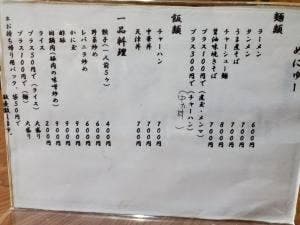 めにゅー
麺類
ラーメン 600円
タンメン 700円
うま煮そば 700円
チャーシュー麺 800円
醤油味焼きそば 700円
プラス300円で(煮玉・メンマ)
プラス100円で(チャーハン)
飯類
チャーハン 700円
中華丼 700円
天津丼 700円
一品料理
餃子(一人前5ケ) 400円
野菜炒め 600円
レバニラ炒め 600円
かに玉 900円
酢豚 900円
回鍋肉(豚肉の味噌炒め) 900円
ライス 200円
プラス50円で(ライス) 大盛り
プラス100円で(麺) 大盛り
お持ち帰り用パック、袋50円で
販売致します。